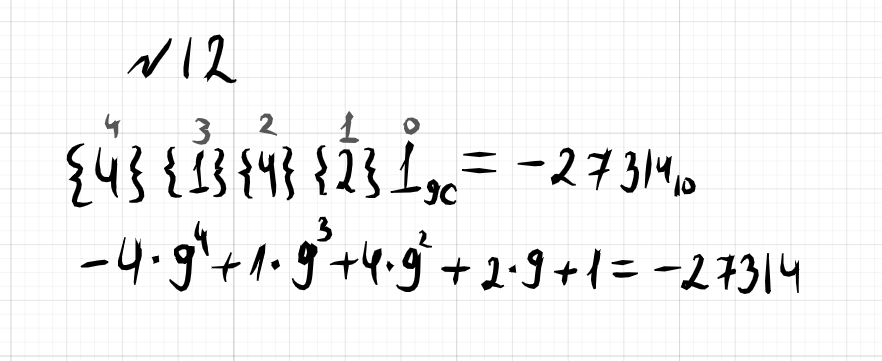 №12
4 3 2 1 0
{4} {1} {4} {2} 1₉c = -27314₁₀
-4·9⁴+1·9³+4·9²+2·9+1=-27314